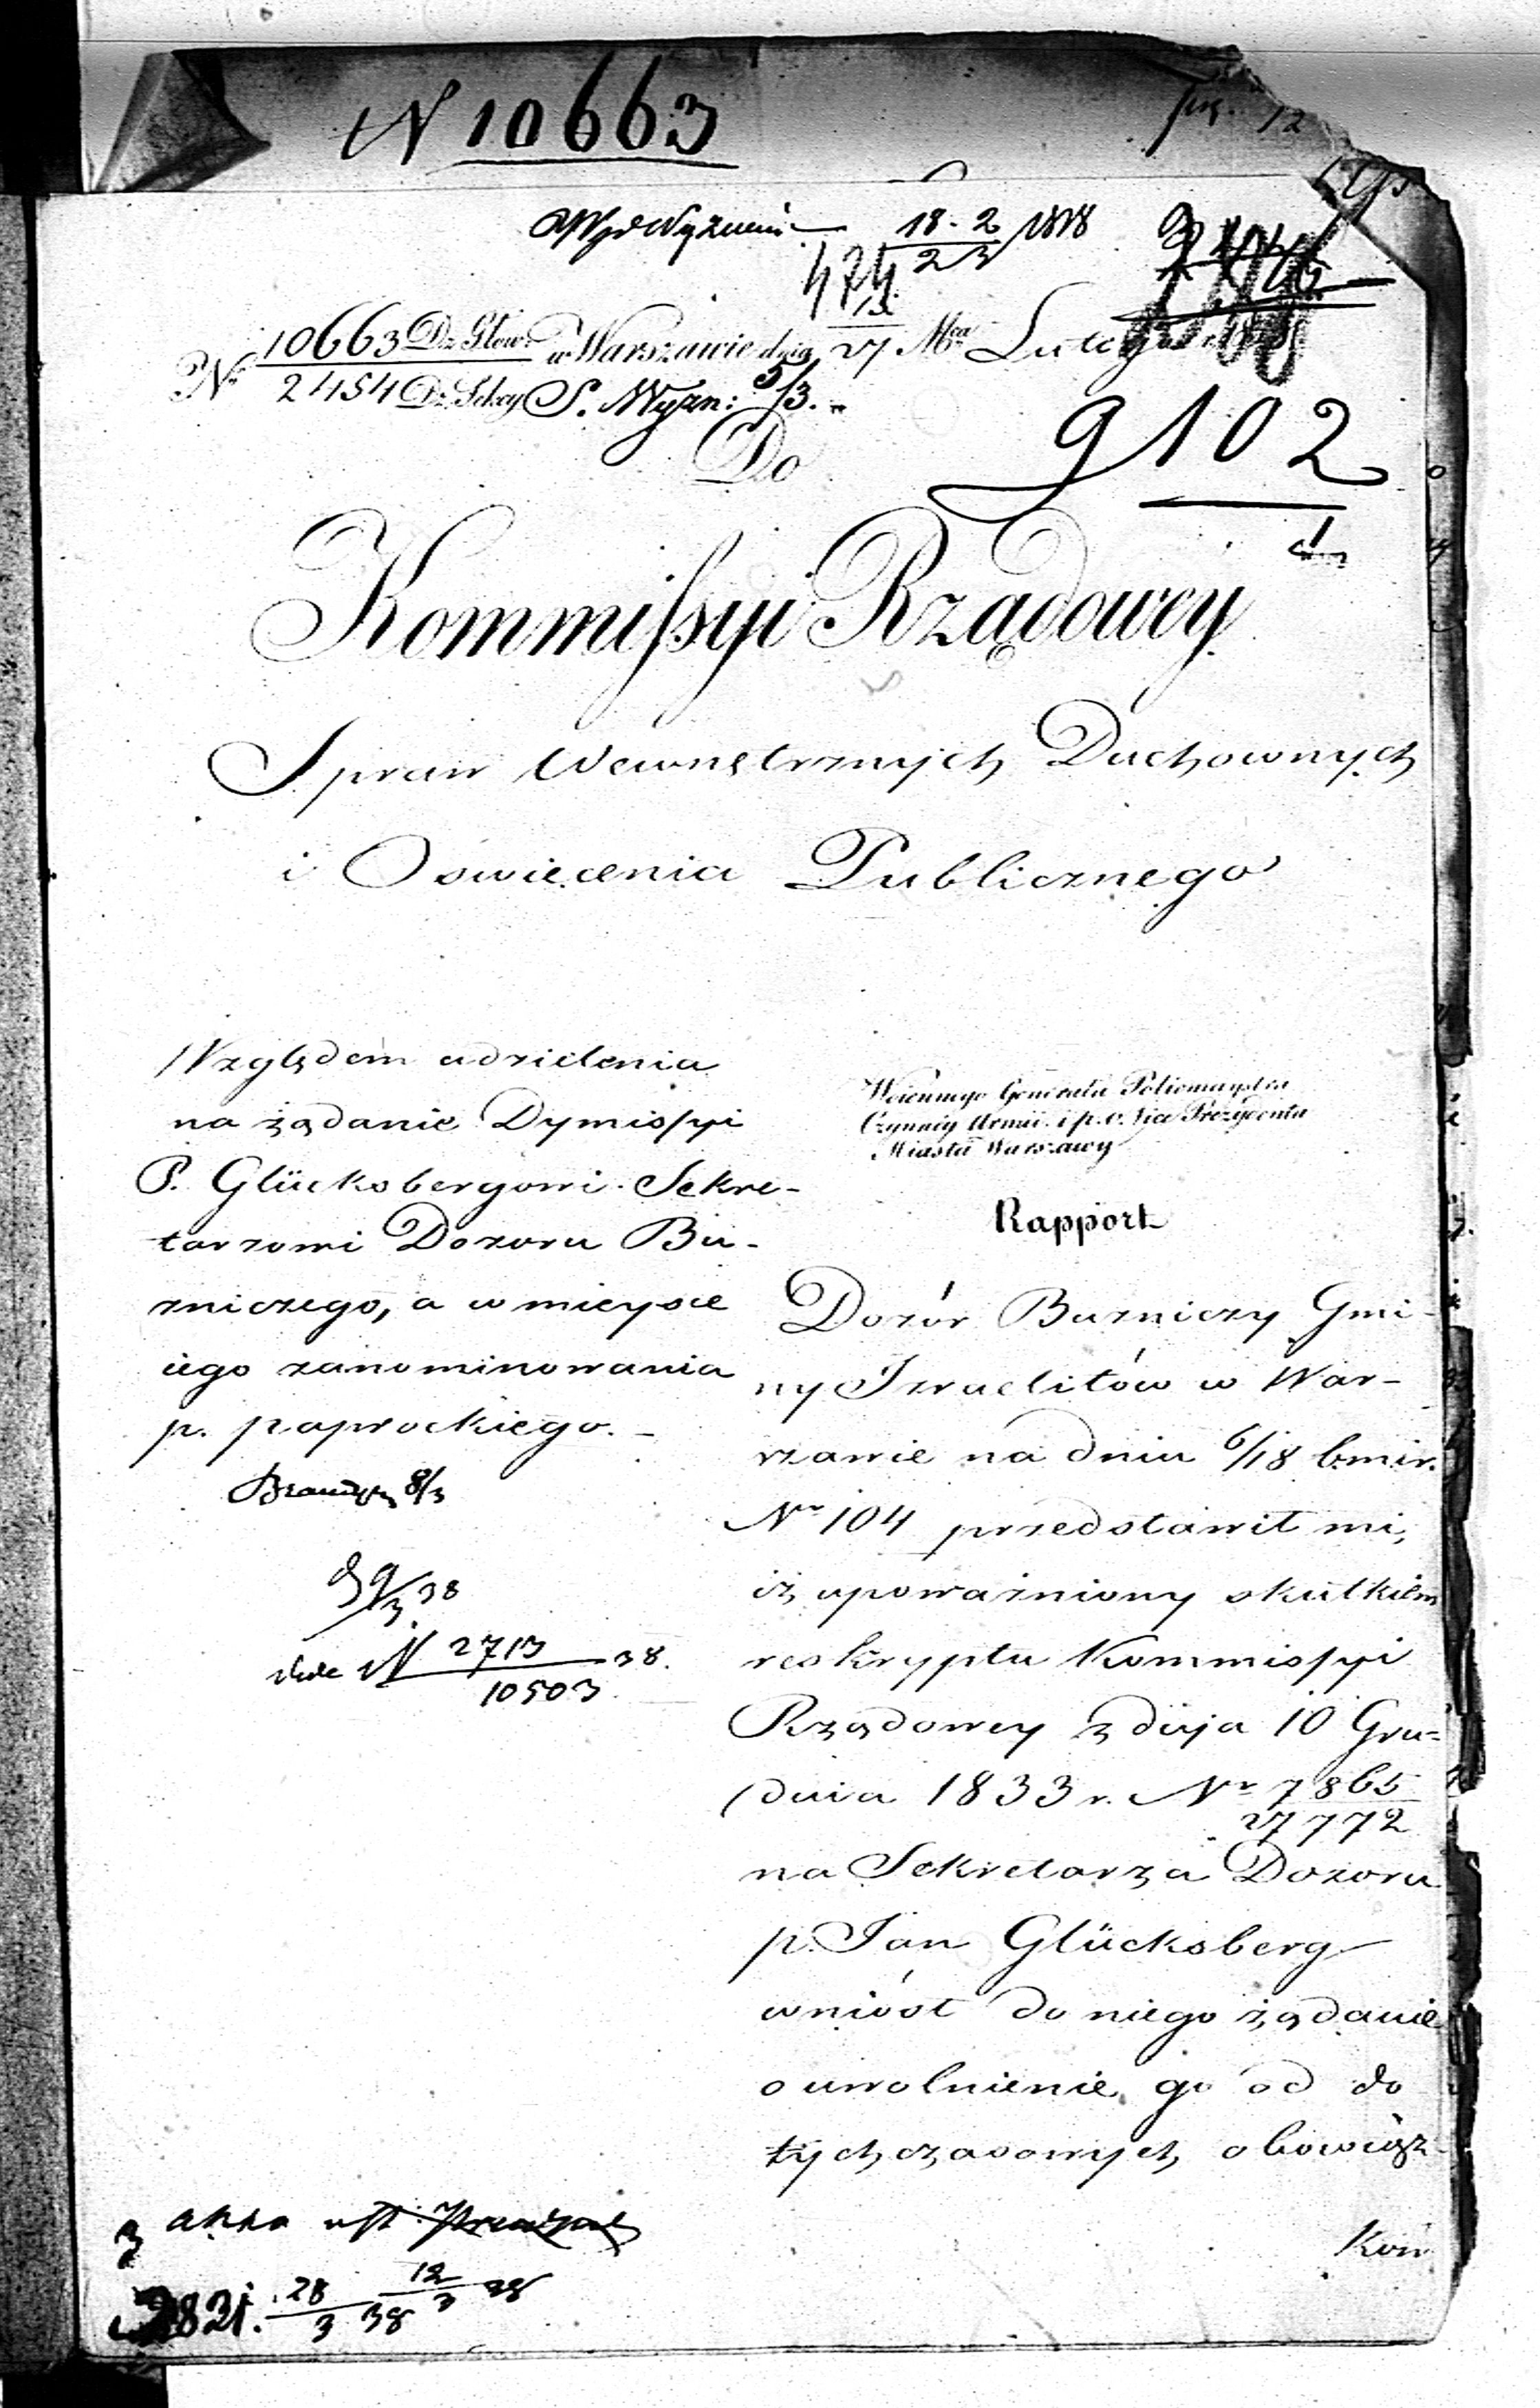 N 10663
18-2 1838
23
474
Nr 10663 Dz. Głow. w Warszawie dnia 15/27 Mca Lutego
2454 Dz. Sekcy S. Wyzn: 5/3.
9102
Do
Kommissyi Rządowey
Spraw Wewnętrznych Duchownych
i Oswiecenia Publicznego
Względem udzielenia
na żądanie Dymissyi
P. Glücksbergowi Sekre-
tarzowi Dozoru Bu-
zniczego, a w mieysce
iego zanominowania
p. Paprockiego.
8/3
9/3 38
N 2713 38.
10503
Woiennego Generała Policmaystra
Czynney Armii i p. o. Vice Prezydenta
Miasta Warszawy
Rapport
Dozór Buzniczy Gmi-
ny Izraelitów w War-
szawie na dniu 6/18 b.m.i r.
Nr 104 przedstawił mi,
iż upoważniony skutkiem
reskryptu Kommissyi
Rządowey z dnia 10 Gru-
dnia 1833 r. Nr 7865
27772
na Sekretarza Dozoru
p. Jan Glücksberg
wniósł do niego żądanie
o uwolnienie go od do
tychczasowych obowiąz-
Kow
28 12 38
3 38 3